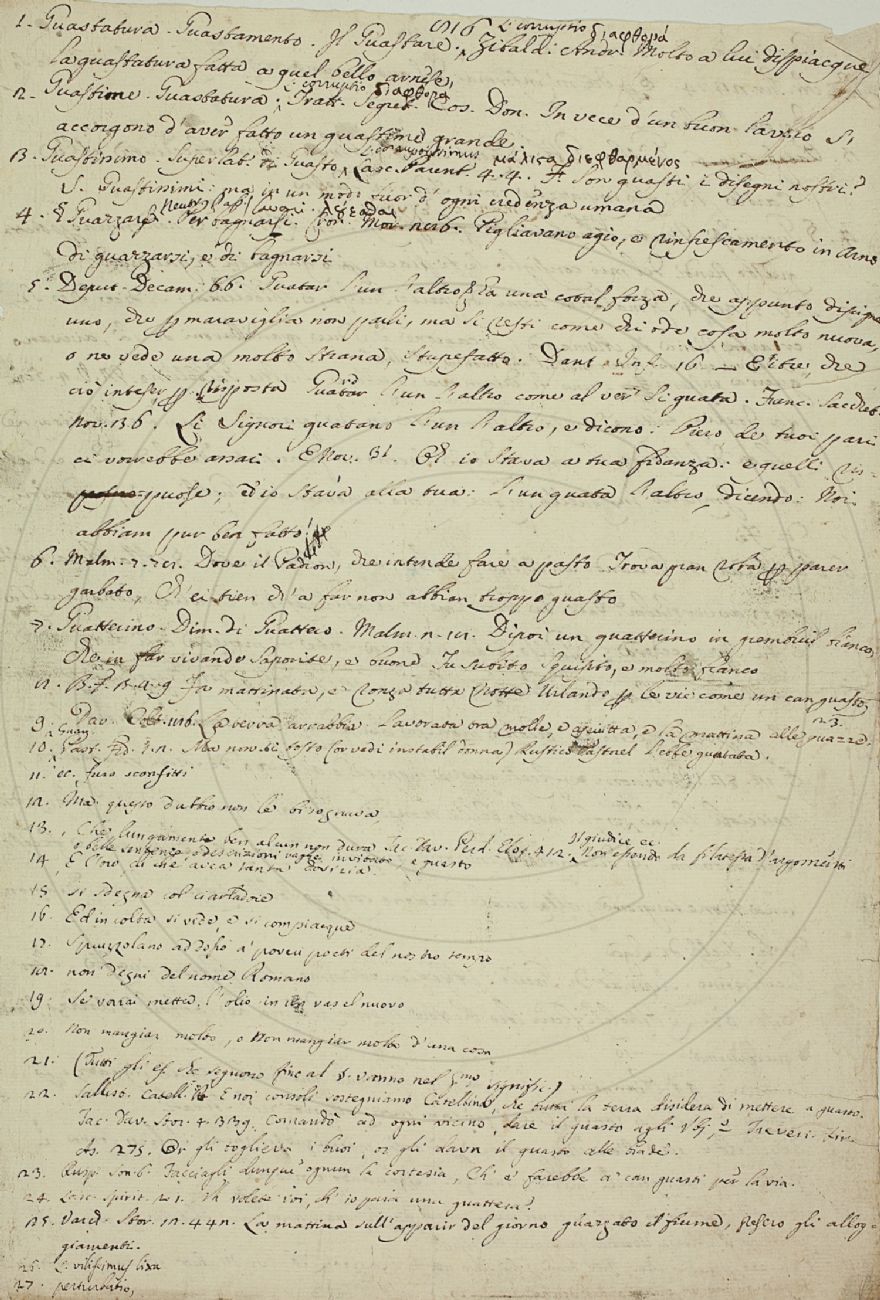 L. corruptio διαφθορά
1. Guastatura. Guastamento. Il Guastare. Zibald. Andr. Molto a lui dispiacque
la guastatura fatta a quel bello arnese,
L. corruptio διαφθορά
2. Guastime. Guastatura. Tratt. Segret. Cos. Don. In vece d'un buon lavoro si
accorgono d'aver fatto un guastime grande.
L. corruptissimus μάλιςα διεφθαρμένος
3. Guastissimo. Superlat. di Guasto. Lasc. Parent. 4. 4. F. Son guasti i disegni nostri?
S. Guastissimi: ma in un modo fuor d'ogni credenza umana
4. § Guazzare Neutr. pass. Per bagnarsi. lavari
Pigliavano agio, e rinfrescamento in Arno
di guazzarsi, e di bagnarsi
5. Deput. Decam. 66. Guatar l'un l'altro ha una cotal forza, che appunto dipigne
uno, che per maraviglia non parli, ma si resti come chi ode cosa molto nuova,
o ne vede una molto strana, stupefatto. Dant. Inf. 16. E'tre, che
ciò inteser per risposta Guatar l'un l'altro come al ver si guata. Franc. Sacchet.
Nov. 136. Li Signori guatano l'un l'altro, e dicono: Puro, de' tuoi pari
ci vorrebbe assai. E Nov. 31. Et io stava a tua fidanza: e quelli ris-
puose; ed io stava alla tua: l'un guata l'altro, dicendo: Noi
abbiam pur ben fatto!
6. Malm. 7. 72. Dove il Padron, che intende fare a pasto Trova gran roba per parer
garbato, Et ei tien ch'a far non abbian troppo guasto
7. Guatterino. Dim. di Guattero. Malm. Dipoi un guatterino in grembiul bianco,
Che in far vivande saporite, e buone Fu subito squisito, e molto franco
Fa mattinata, e ronza tutta notte Urlando per le vie come un can guasto
9. Dav. Colt. La terra arrabbia lavorata ora molle, e asciutta, e la mattina alle guazze.
10. Ma non sì tosto (or vedi instabil donna) Rustico Pastorel l'ebbe guatata.
11. ec. furo sconfitti
12. Ma questo dubbio non le bisognava
13. Che lungamente ben alcun non dura Tac. Dav. Perd. Eloq. 412. Il giudice ec.
o belle sentenze, o descrizioni vaghe invitato, e guasto
14.
15. Si sdegna col ciarladore
16. Ed in colta si vede, e si compiacque
17. Spruzzolano addosso a' poveri poeti del nostro tempo
18. non degni del nome Romano
19. Se vorrai metter l'olio in un vasel nuovo
20. Non mangiar molto, o Non mangiar molto d'una cosa
21. (Tutti gli es. che seguono fino al § vanno nel signific.)
22. Sallust. Catell. E noi consoli sosteguiamo Catellino, che tutta la terra disidera di mettere a guasto.
Tac. Dav. Stor. 4. 339. Comandò ad ogni vicino dare il guasto agli Treveri. Fir.
As. 275. Or gli toglieva i buoi, or gli dava il guasto alle biade.
23. Rusp. Son. 6. Facciagli dunque ognun la cortesia, Ch'e' farebbe a' can guasti per la via.
24. Lasc. Spirit. 2. 1. volete voi, ch'io paia una guattera?
25. Varch. Stor. 12. 442. La mattina sull'apparir del giorno guazzato il fiume, gli allog-
giamenti.
26. L. vilissimus lixa
27. perturbatio,